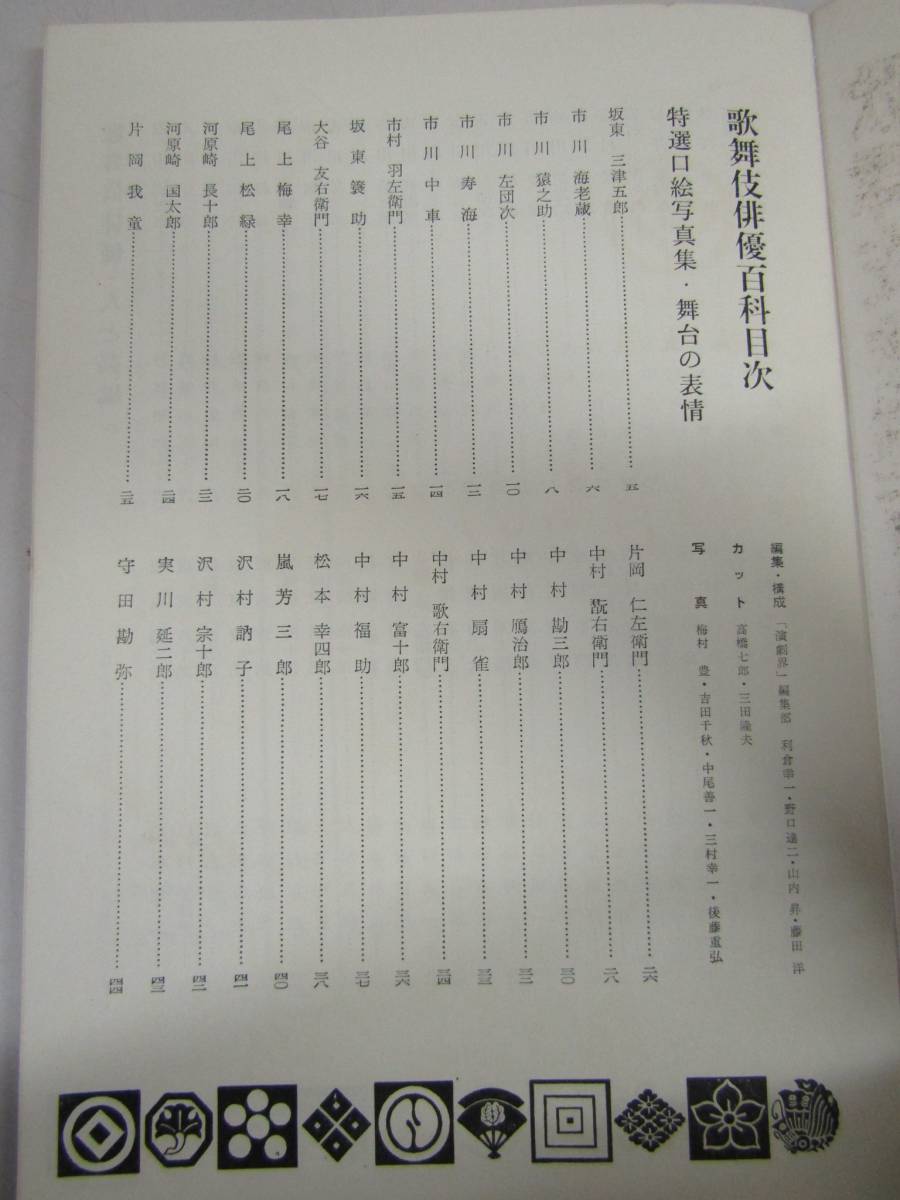 歌舞伎俳優百科目次
特選口絵写真集・舞台の表情
坂東 三津五郎……五
市川 海老蔵……六
市川 猿之助……八
市川 左団次……一〇
市川 寿海……一二
市川 中車……一四
市村 羽左衛門……一五
坂東 簑助……一六
大谷 友右衛門……一七
尾上 梅幸……一八
尾上 松緑……二〇
河原崎 長十郎……二二
河原崎 国太郎……二四
片岡 我童……二五
編集・構成 「演劇界」編集部 利倉幸一・野口達二・山内 昇・藤田 洋
カット 高橋七郎・三田隆夫
写真 梅村 豊・吉田千秋・中尾善一・三村幸一・後藤重弘
片岡 仁左衛門……二六
中村 翫右衛門……二八
中村 勘三郎……三〇
中村 鴈治郎……三二
中村 扇雀……三三
中村 歌右衛門……三四
中村 富十郎……三六
中村 福助……三七
松本 幸四郎……三八
嵐 芳三郎……四〇
沢村 訥子……四一
沢村 宗十郎……四二
実川 延二郎……四三
守田 勘弥……四四